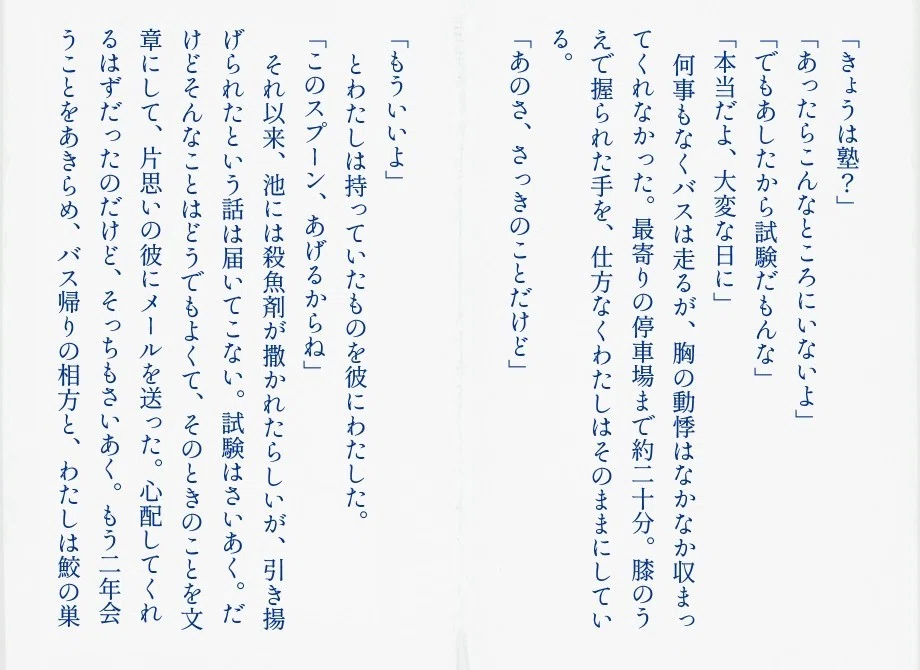 「きょうは塾？」
「あったらこんなところにいないよ」
「でもあしたから試験だもんな」
「本当だよ、大変な日に」
　何事もなくバスは走るが、胸の動悸はなかなか収まっ
てくれなかった。最寄りの停車場まで約二十分。膝のう
えで握られた手を、仕方なくわたしはそのままにしてい
る。
「あのさ、さっきのことだけど」
「もういいよ」
　とわたしは持っていたものを彼にわたした。
「このスプーン、あげるからね」
　それ以来、池には殺魚剤が撒かれたらしいが、引き揚
げられたという話は届いてこない。試験はさいあく。だ
けどそんなことはどうでもよくて、そのときのことを文
章にして、片思いの彼にメールを送った。心配してくれ
るはずだったのだけど、そっちもさいあく。もう二年会
うことをあきらめ、バス帰りの相方と、わたしは鮫の巣